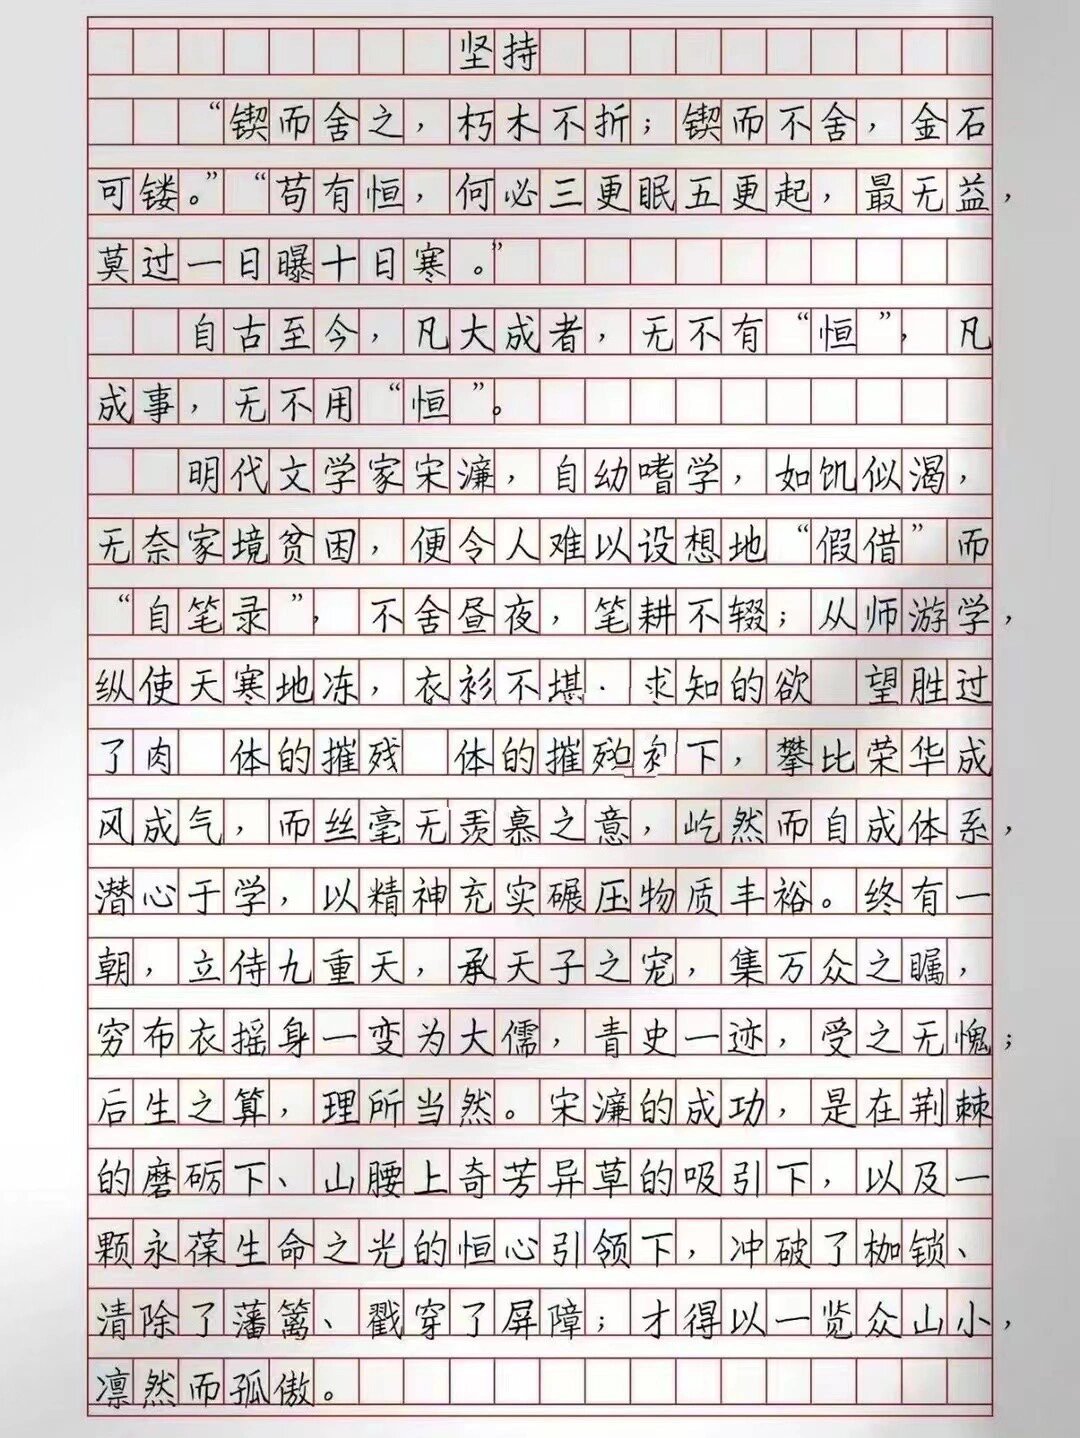 坚持
“锲而舍之，朽木不折；锲而不舍，金石
可镂。”“苟有恒，何必三更眠五更起，最无益，
莫过一日曝十日寒。”
自古至今，凡大成者，无不有“恒”，凡
成事，无不用“恒”。
明代文学家宋濂，自幼嗜学，如饥似渴，
无奈家境贫困，便令人难以设想地“假借”而
“自笔录”，不舍昼夜，笔耕不辍；从师游学，
纵使天寒地冻，衣衫不堪．求知的欲 望胜过
了肉 体的摧残 体的摧残 下，攀比荣华成
风成气，而丝毫无羡慕之意，屹然而自成体系，
潜心于学，以精神充实碾压物质丰裕。终有一
朝，立侍九重天，承天子之宠，集万众之瞩，
穷布衣摇身一变为大儒，青史一迹，受之无愧；
后生之算，理所当然。宋濂的成功，是在荆棘
的磨砺下、山腰上奇芳异草的吸引下，以及一
颗永葆生命之光的恒心引领下，冲破了枷锁、
清除了藩篱、戳穿了屏障；才得以一览众山小，
凛然而孤傲。